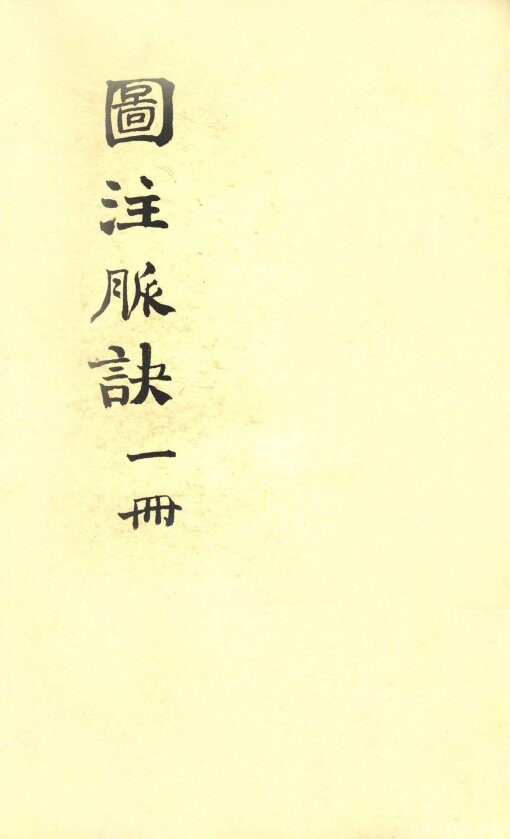 圖注脈訣一冊